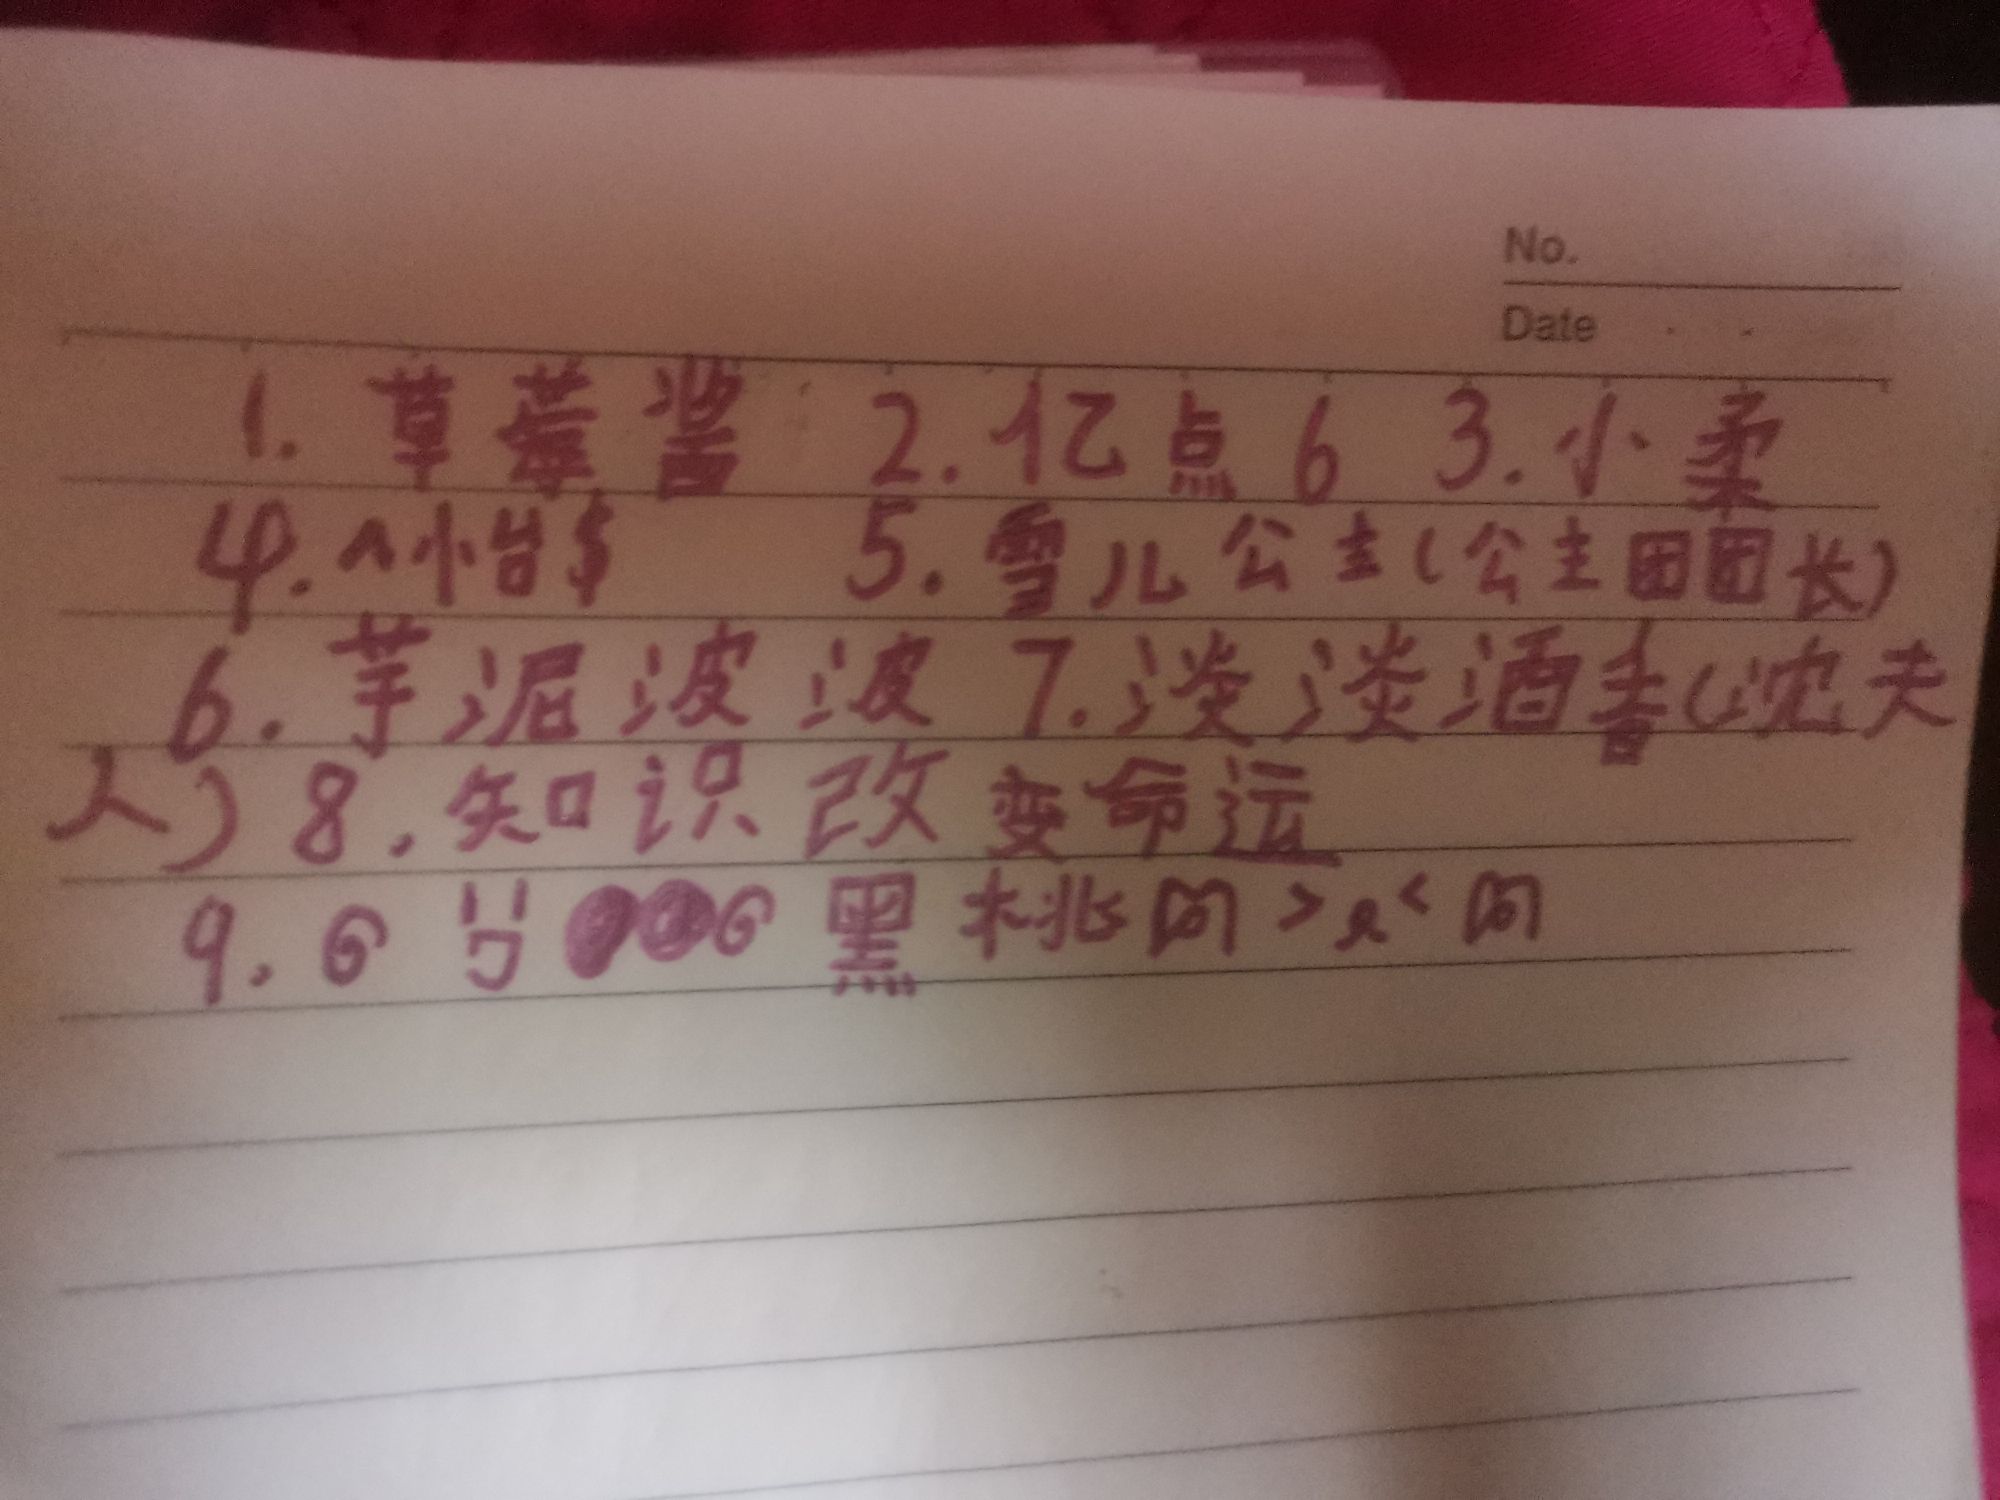 No.
Date
1. 草莓酱 2. 亿点6 3. 小柔
4. ^小怡$ 5. 雪儿公主(公主团团长)
6. 芋泥波波 7. 淡淡酒香(沈夫
人) 8. 知识改变命运
9. 黑桃